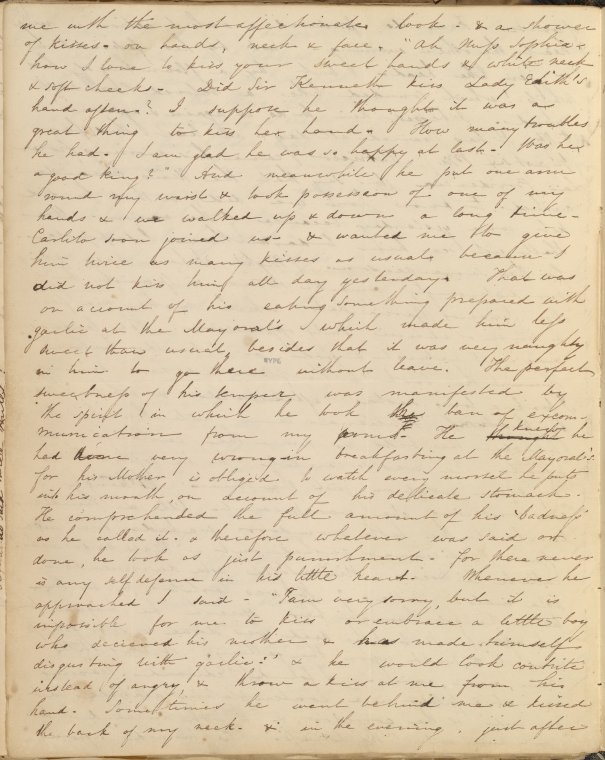 me with the most affectionate look - & a shower
of kisses - on hands, neck & face. "Ah Miss Sophia -
how I love to kiss your sweet hands & white neck
& soft cheeks - Did Sir Kenneth kiss Lady Edith's
hand often? I suppose he thought it was a
great thing to kiss her hand. How many troubles
he had. I am glad he was so happy at last. Was he
a good king?" And meanwhile he put one arm
round my waist & took possession of one of my
hands & we walked up & down a long time -
Carlito soon joined us - & wanted me to give
him twice as many kisses as usual because I
did not kiss him all day yesterday. That was
on account of his eating something prepared with
garlic at the Mayoral's which made him less
sweet than usual, besides that it was very naughty
in him to go there without leave. The perfect
sweetness of his temper was manifested by
the spirit in which he took the ban of excom-
munication from my arms. He thought knew he
had done very wrong in breakfasting at the Mayoral's
for his Mother is obliged to watch every morsel he puts
into his mouth, on account of his delicate stomach.
He comprehended the full amount of his 'badness'
as he called it - & therefore whatever was said or
done, he took as just punishment - for there never
is any self defence in his little heart. Whenever he
approached I said - "I am very sorry, but it is
impossible for me to kiss or embrace a little boy
who deceived his mother & has made himself
disgusting with garlic:" & he would look contrite
instead of angry, & throw a kiss at me from his
hand. Sometimes he went behind me & kissed
the back of my neck - & in the evening, just after